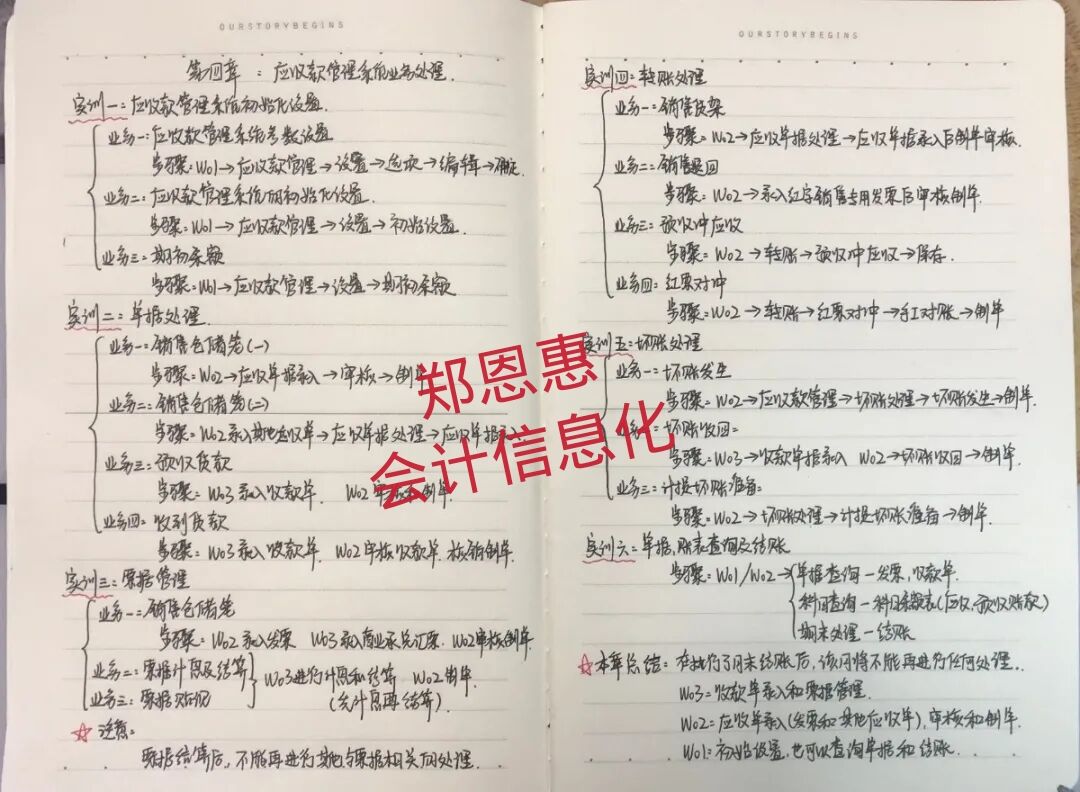 OURSTORYBEGINS
第四章：应收款管理系统业务处理.
实训一：应收款管理系统初始化设置.
业务一：应收款管理系统参数设置
步骤：W01→应收款管理→设置→选项→编辑→确定.
业务二：应收款管理系统的初始化设置.
步骤：W01→应收款管理→设置→初始设置.
业务三：期初余额
步骤：W01→应收款管理→设置→期初余额
实训二：单据处理.
业务一：销售仓储笼(一)
步骤：W02→应收单据录入→审核→制单
业务二：销售仓储笼(二)
步骤：W02录入其他应收单→应收单据处理→应收单据
业务三：预收货款
步骤：W03录入收款单. W02审 制单.
业务四：收到货款
步骤：W03录入收款单 W02审核收款单.核销制单.
实训三：票据管理
业务一：销售仓储笼
步骤：W02录入发票 W03录入商业承兑汇票. W02审核制单.
业务二：票据计息及结算
业务三：票据贴现
W03进行计息和结算 W02制单.
(先计息再结算).
☆ 注意：
票据结算后，不能再进行其他与票据相关的处理.
OURSTORYBEGINS
实训四：转账处理
业务一：销售货架
步骤：W02→应收单据处理→应收单据录入后制单审核.
业务二：销售退回
步骤：W02→录入红字销售专用发票后审核制单.
业务三：预收冲应收
步骤：W02→转账→预收冲应收→保存.
业务四：红票对冲
步骤：W02→转账→红票对冲→手工对账→制单
实训五：坏账处理
业务一：坏账发生
步骤：W02→应收款管理→坏账处理→坏账发生→制单.
业务二：坏账收回：
步骤：W03→收款单据录入 W02→坏账收回→制单.
业务三：计提坏账准备：
步骤：W02→坏账处理→计提坏账准备→制单.
实训六：单据,账表查询及结账
步骤：W01/W02→单据查询—发票,收款单.
科目查询—科目余额表(应收、预收账款)
期末处理—结账
☆本章总结：在执行了月末结账后，该月将不能再进行任何处理.
W03：收款单录入和票据管理.
W02：应收单录入(发票和其他应收单),审核和制单.
W01：初始设置,也可以查询单据和结账.
郑恩惠
会计信息化